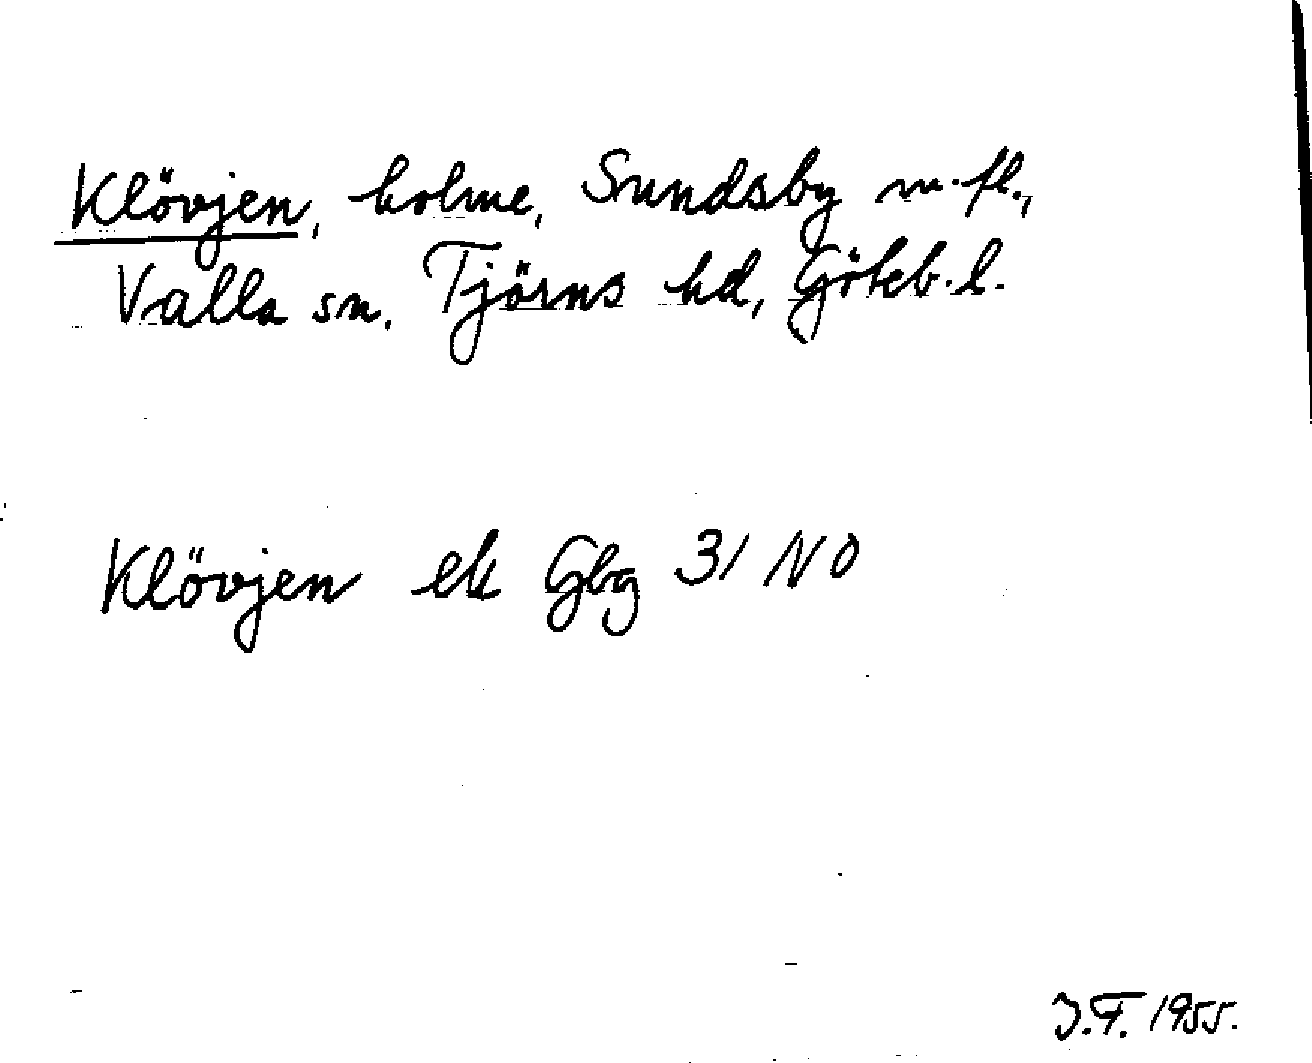 Klövjen, holme, Sundsby m.fl.,
Valla sn, Tjörns hd, Göteb. l.
Klövjen ek Gbg 31 NO
J.F. 1955.